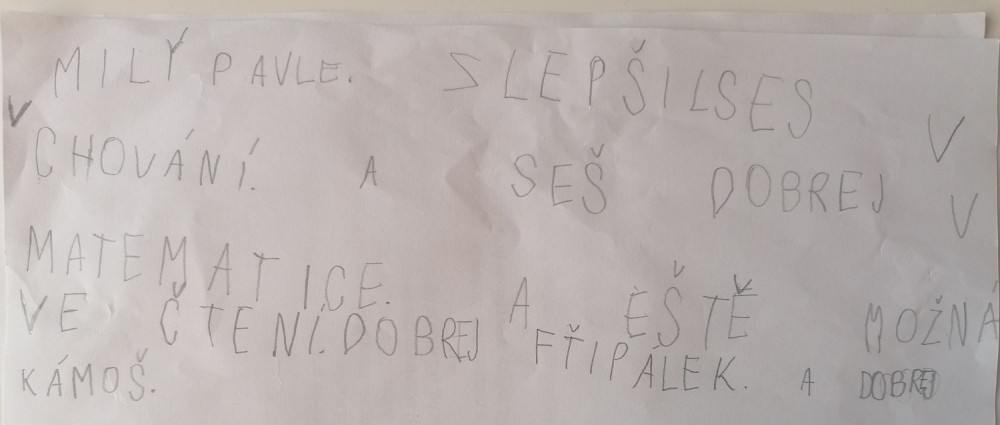 MILÝ PAVLE. SLEPŠILSES V
CHOVÁNÍ. A SEŠ DOBREJ V
MATEMATICE. A EŠTĚ MOŽNÁ
VE ČTENÍ. DOBREJ FŤIPÁLEK. A DOBREJ
KÁMOŠ.